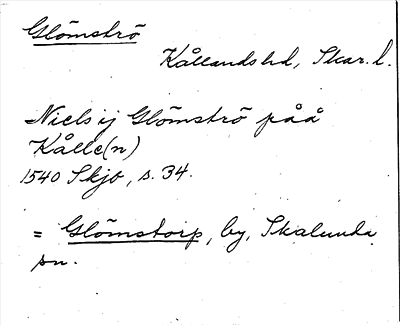 Glömströ
Kållands hd, Skar. l.
Niels ij Glömströ påå
Kålle(n)
1540 Skjb, s. 34.
= Glömstorp, by, Skalunda
sn.